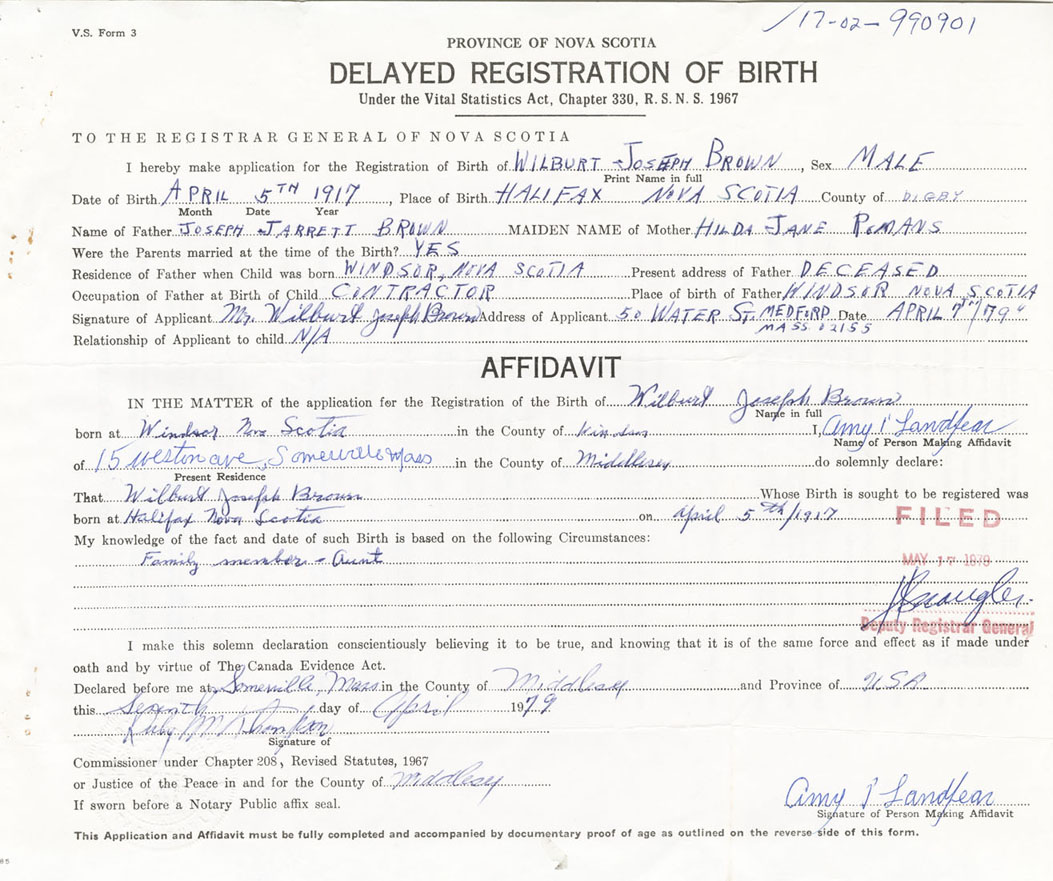 V.S. Form 3
17-02-990901
PROVINCE OF NOVA SCOTIA
DELAYED REGISTRATION OF BIRTH
Under the Vital Statistics Act, Chapter 330, R.S.N.S. 1967
TO THE REGISTRAR GENERAL OF NOVA SCOTIA
I hereby make application for the Registration of Birth of WILBURT JOSEPH BROWN, Sex MALE
Print Name in full
Date of Birth APRIL 5TH 1917, Place of Birth HALIFAX NOVA SCOTIA County of DIGBY
Month Date Year
Name of Father JOSEPH JARRETT BROWN MAIDEN NAME of Mother HILDA JANE ROMANS
Were the Parents married at the time of the Birth? YES
Residence of Father when Child was born WINDSOR, NOVA SCOTIA Present address of Father DECEASED
Occupation of Father at Birth of Child CONTRACTOR Place of birth of Father WINDSOR NOVA SCOTIA
Signature of Applicant Mr. Wilburt Joseph Brown Address of Applicant 50 WATER ST. MEDFORD Date APRIL 7TH/79
MASS 02155
Relationship of Applicant to child N/A
AFFIDAVIT
IN THE MATTER of the application for the Registration of the Birth of Wilburt Joseph Brown
Name in full
born at Windsor Nova Scotia in the County of I, Amy Landfear
Name of Person Making Affidavit
of 15 Weston ave, Somerville Mass in the County of Middlesex do solemnly declare:
Present Residence
That Wilburt Joseph Brown Whose Birth is sought to be registered was
born at Halifax Nova Scotia on April 5th/1917
FILED
My knowledge of the fact and date of such Birth is based on the following Circumstances:
Family member - Aunt
MAY 17 1979
Deputy Registrar General
I make this solemn declaration conscientiously believing it to be true, and knowing that it is of the same force and effect as if made under
oath and by virtue of The Canada Evidence Act.
Declared before me at Somerville, Mass in the County of Middlesex and Province of U.S.A.
this Seventh day of April 1979
Ruby M Thompson
Signature of
Commissioner under Chapter 208, Revised Statutes, 1967
or Justice of the Peace in and for the County of Middlesex
If sworn before a Notary Public affix seal.
Amy Landfear
Signature of Person Making Affidavit
This Application and Affidavit must be fully completed and accompanied by documentary proof of age as outlined on the reverse side of this form.